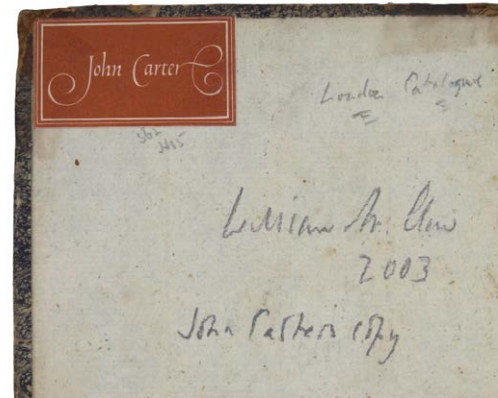 John Carter
London Catalogue
362
William St. Clair
2003
John Carters copy